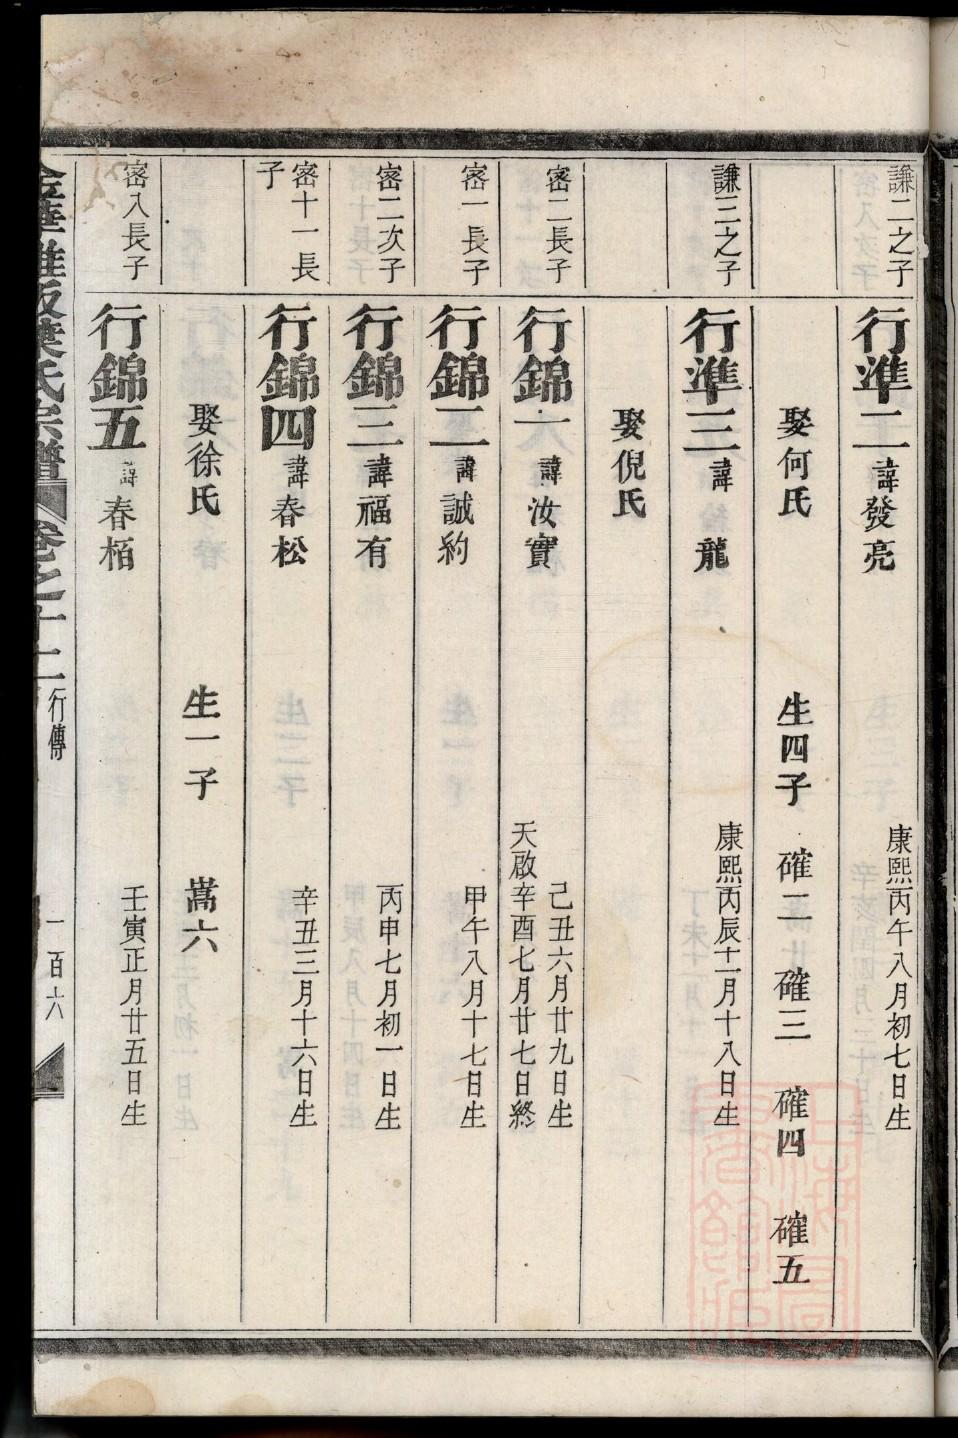 謙二之子
行準二 諱發亮 康熙丙午八月初七日生
娶何氏 生四子 確二 確三 確四 確五
謙三之子
行準三 諱龍 康熙丙辰十一月十八日生
娶倪氏
密二長子
行錦一 諱汝實 己丑六月廿九日生
天啟辛酉七月廿七日終
密一長子
行錦二 諱誠約 甲午八月十七日生
密二次子
行錦三 諱福有 丙申七月初一日生
密十一長子
行錦四 諱春松 辛丑三月十六日生
娶徐氏 生一子 嵩六
密八長子
行錦五 諱春栢 壬寅正月廿五日生
葉氏宗譜 卷之十二 行傳 一百六